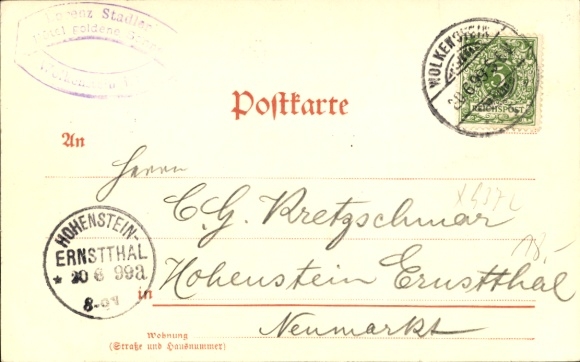 Lorenz Stadler
Hotel goldene Sonne
WOLKENSTEIN
5
REICHSPOST
Postkarte
An
Herrn
C. G. Kretzschmar
HOHENSTEIN-
ERNSTTHAL
* 20 6 99a
8-9
in Hohenstein Ernstthal
18,-
Neumarkt
Wohnung
(Straße und Hausnummer)